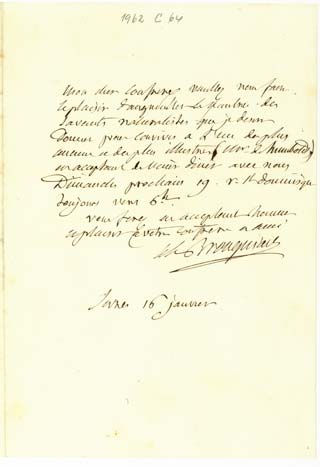 1962 C 64
Mon cher confrere veuillez nous faire
le plaisir d'augmenter le nombre des
savants naturalistes que je desire
donner pour convives à l'un des plus
anciens et des plus illustres (Mr de Humboldt)
en acceptant de venir diner avec nous
Dimanche prochain 19 r. St dominique
toujours vers 6h.
vous ferez en acceptant honneur
et plaisir à votre confrere et ami
Al Brongniart
Sevres 16 janvier